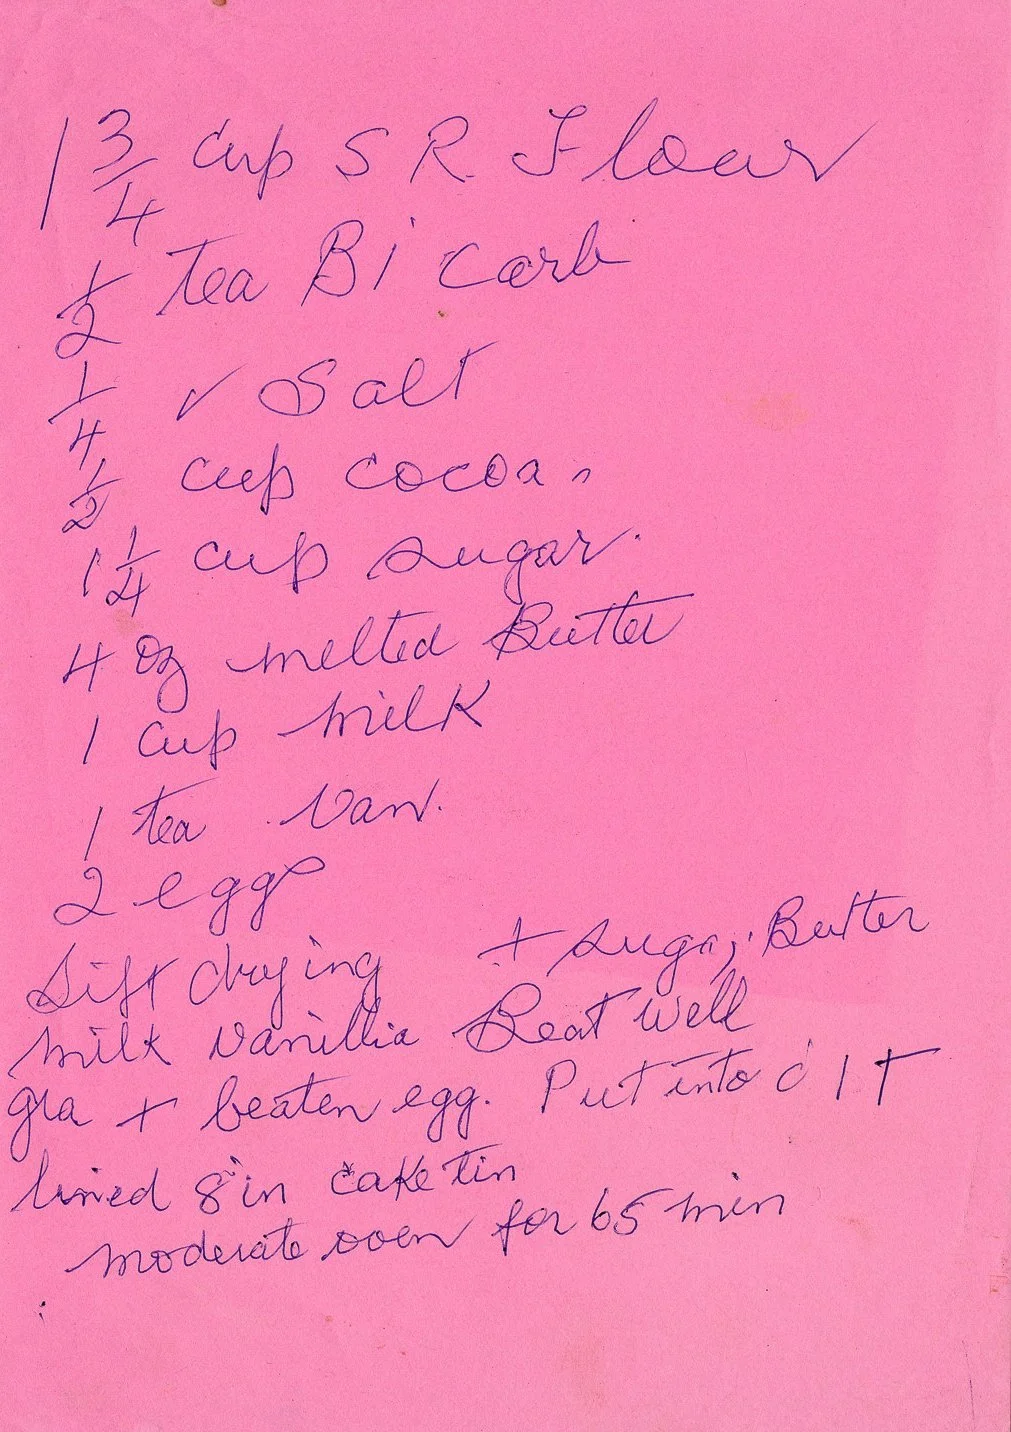 1 3/4 cup S R. Flour
1/2 tea Bi Carb
1/4 ✓ Salt
1/2 cup cocoa.
1 1/4 cup sugar.
4 oz melted Butter
1 cup milk
1 tea Van.
2 eggs
Sift dry ing + sugar, Butter
milk Vanillia Beat well
gra + beaten egg. Put into
lined 8" in cake tin
moderate oven for 65 min